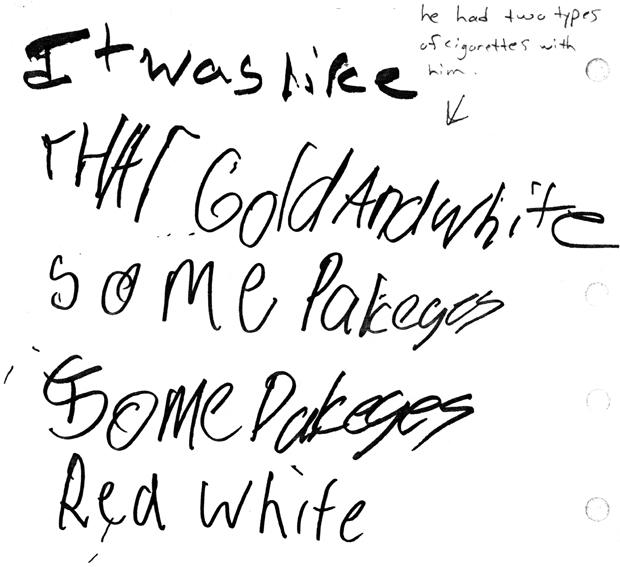 he had two types
of cigarettes with
him.
It was like
THAT Gold And white
SOME Pakeges
Some Pakeges
Red white